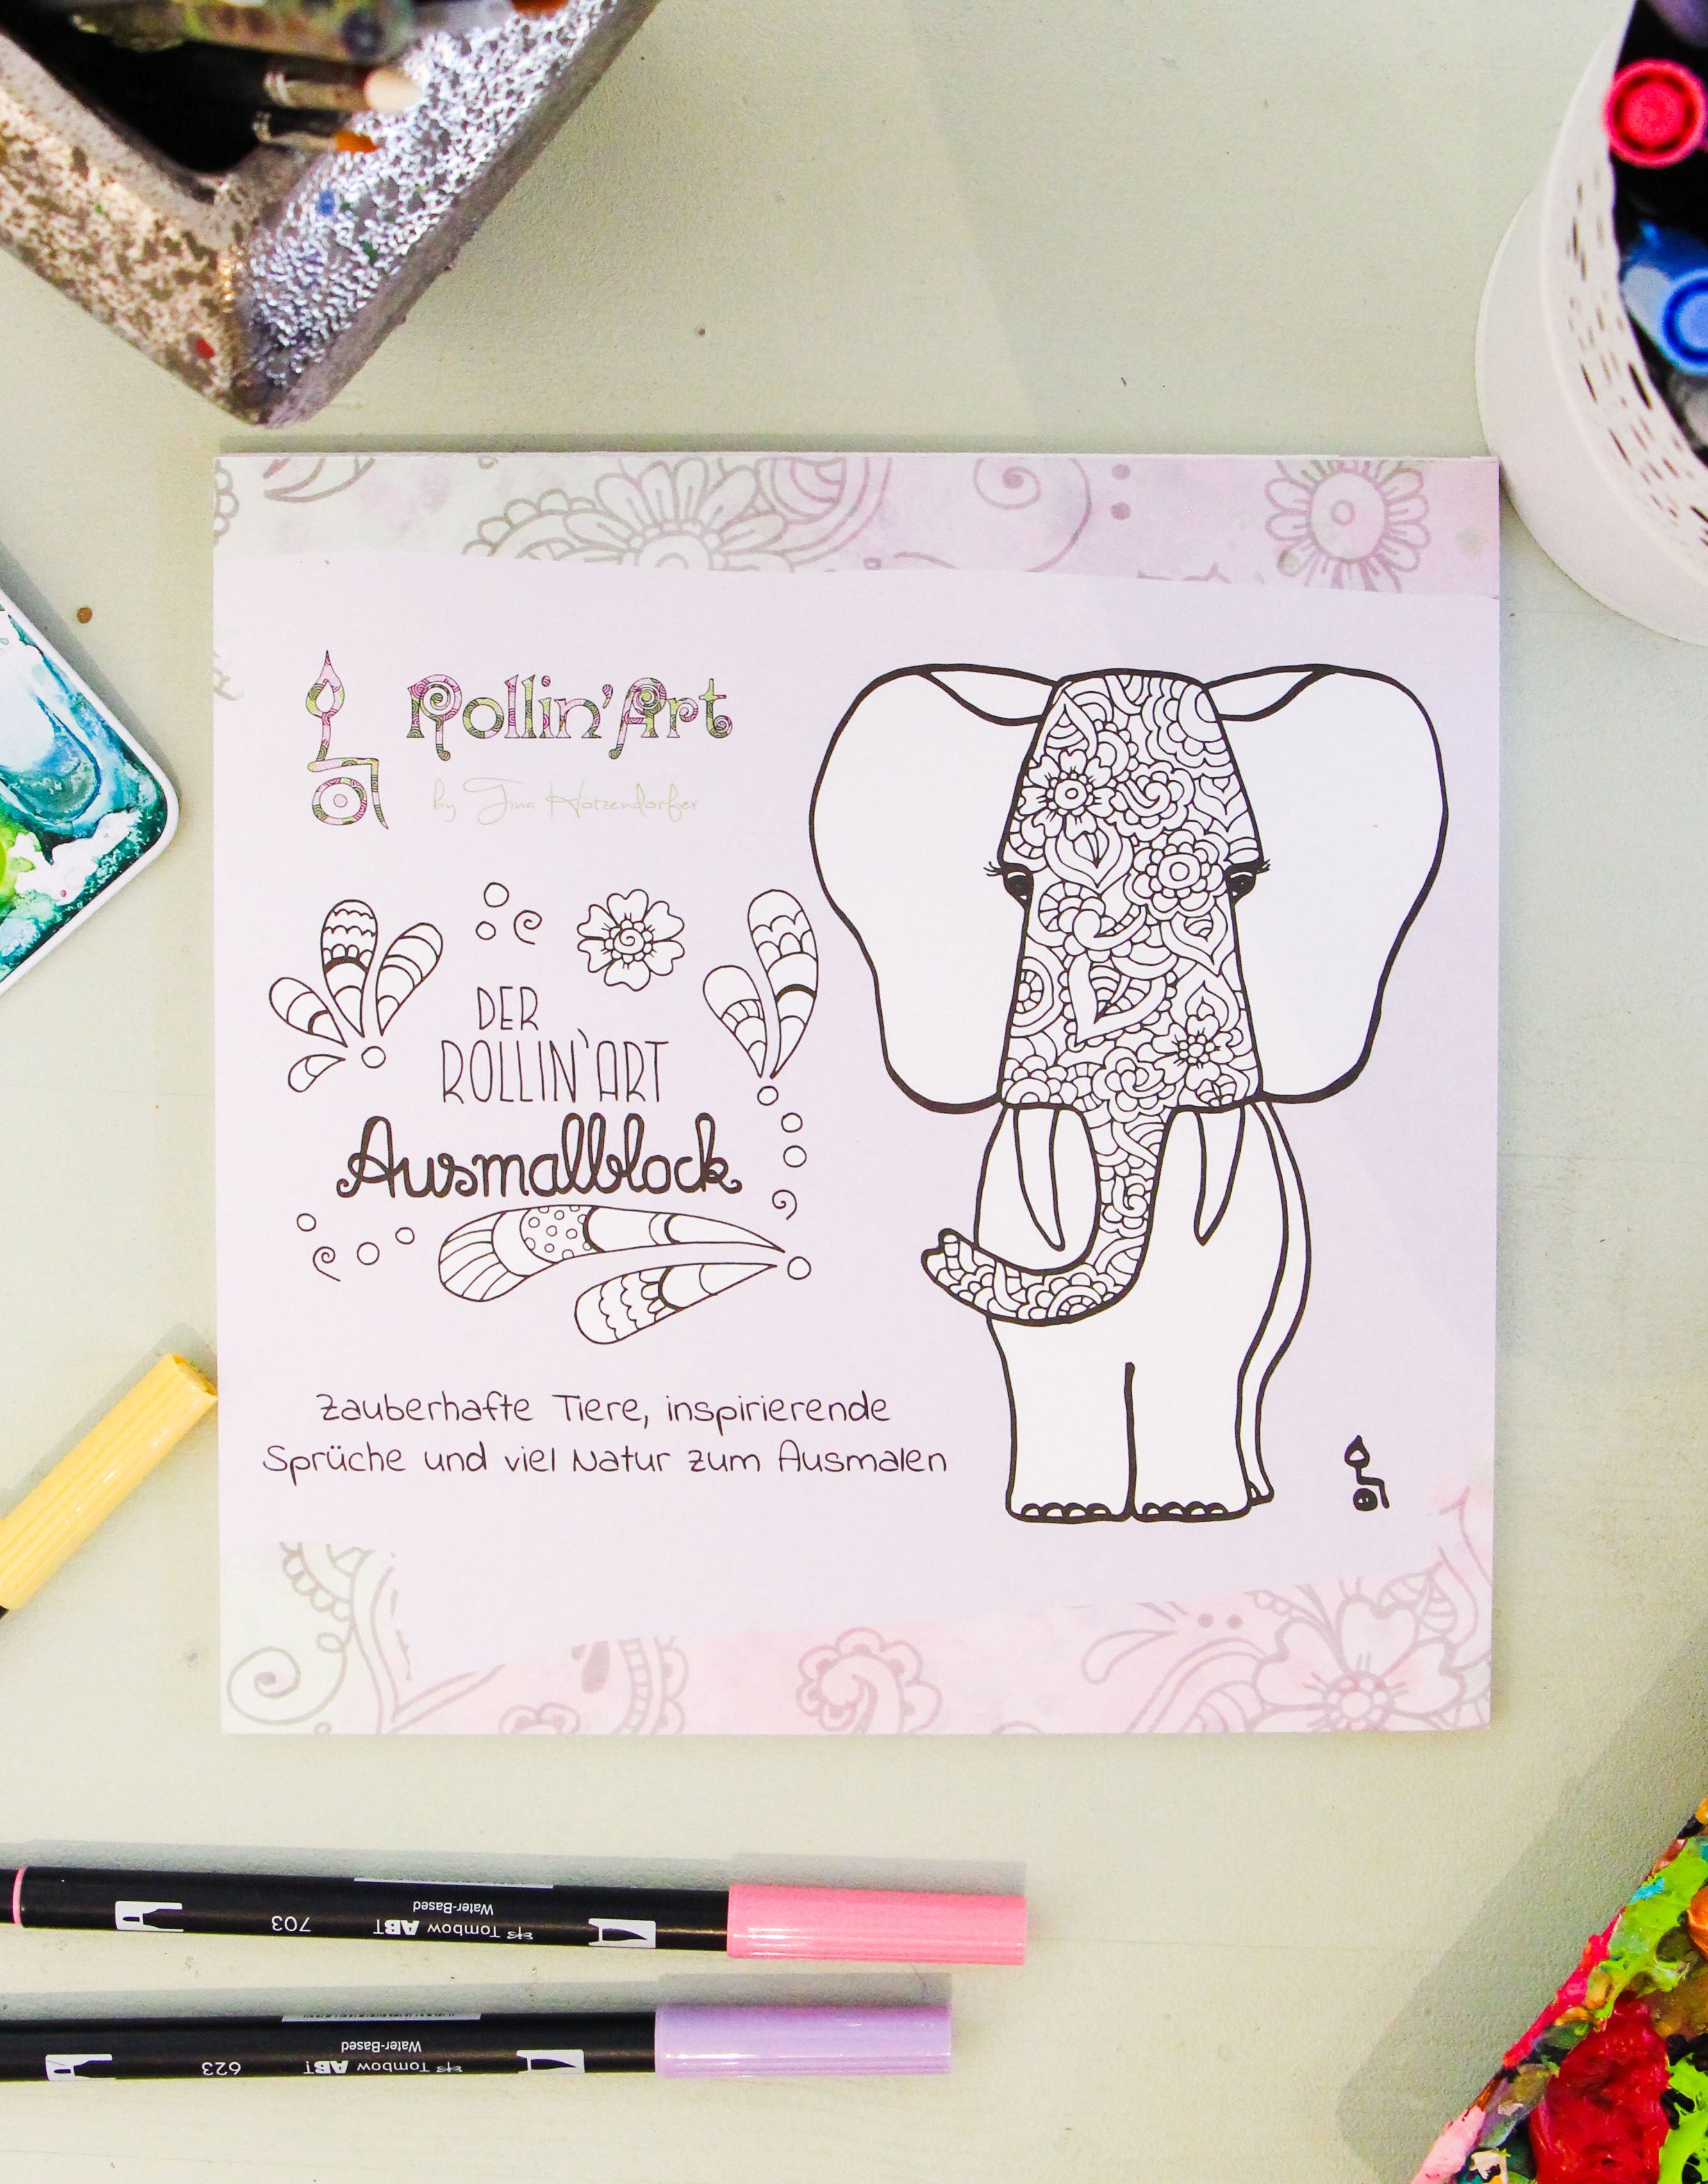 Rollin'Art
by Tina Hötzendorfer
DER
ROLLIN'ART
Ausmalblock
Zauberhafte Tiere, inspirierende
Sprüche und viel Natur zum Ausmalen
703
Tombow ABT
Water-Based
623
Tombow ABT
Water-Based